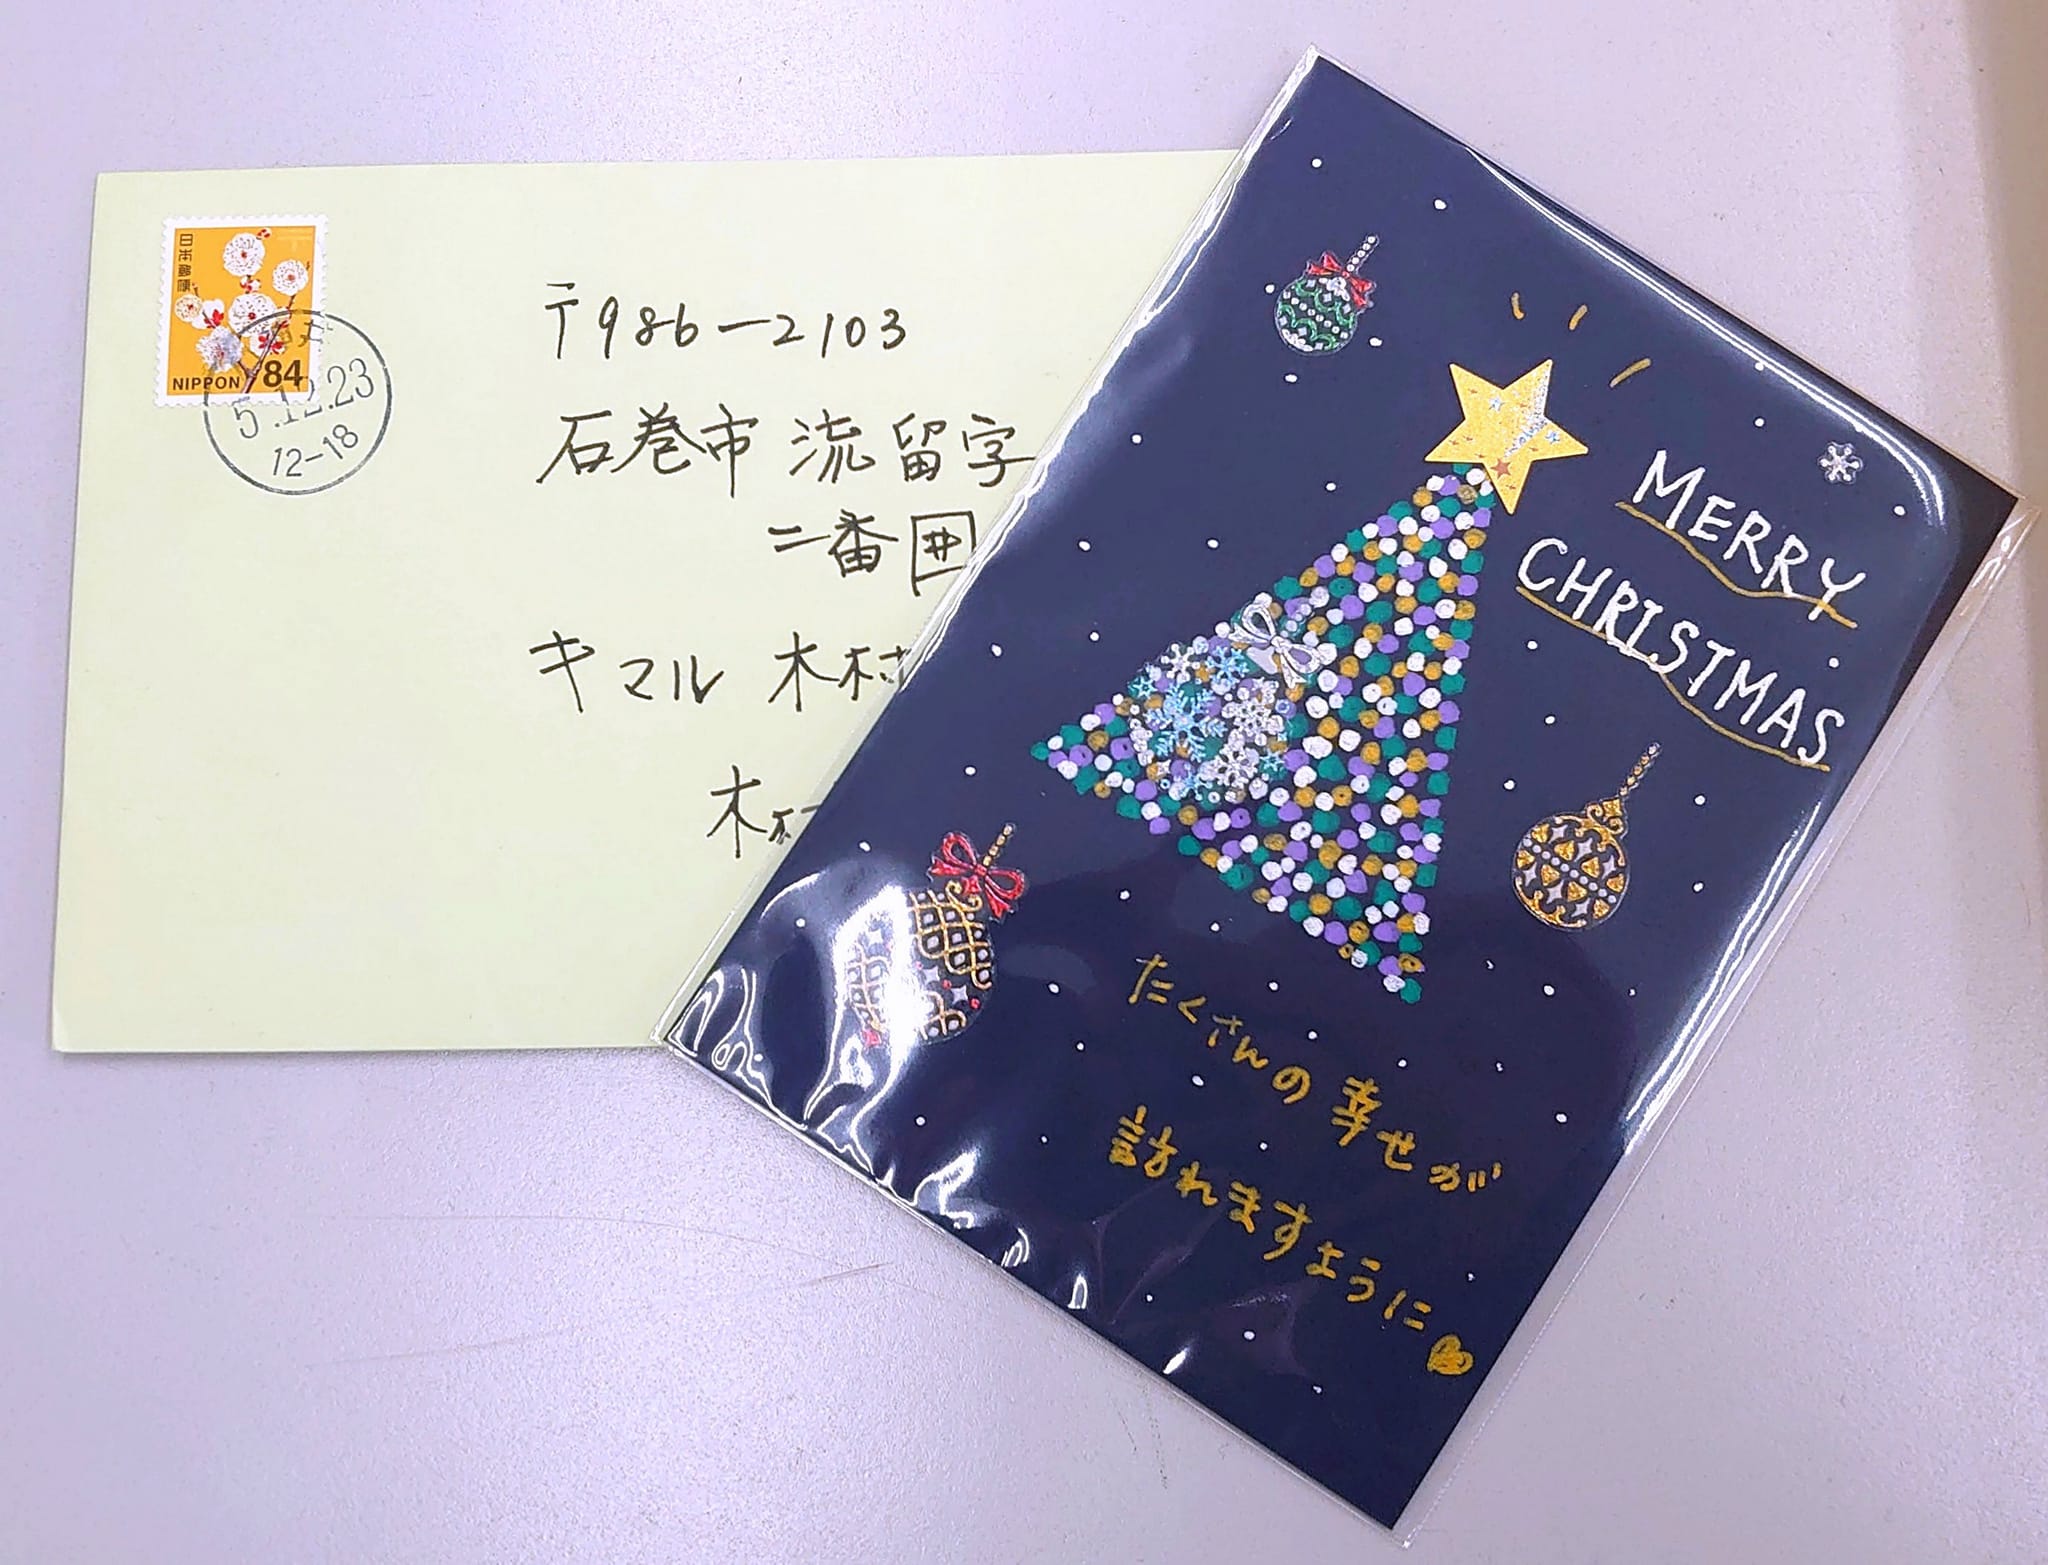 日本郵便
NIPPON 84
5.12.23
12-18
〒986-2103
石巻市 流留字
二番囲
キマル 木村
木村
MERRY
CHRISTMAS
たくさんの幸せが
訪れますように